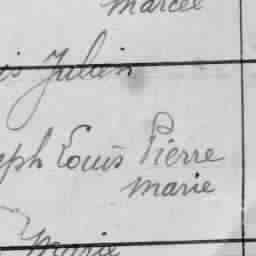 marcel
is Julien
eph Louis Pierre
marie
Marie